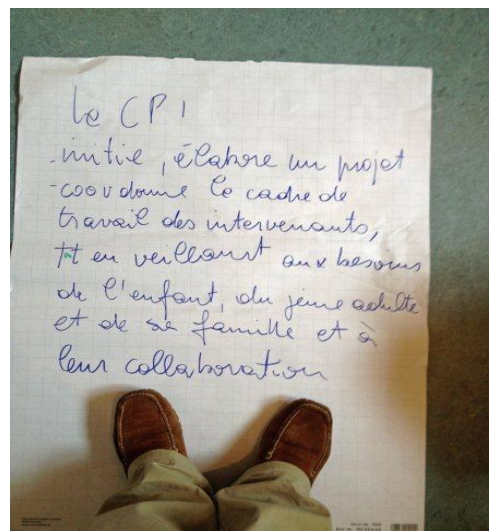 Le CPI
-initie, élabore un projet
-coordonne le cadre de
travail des intervenants,
tt en veillant aux besoins
de l'enfant, du jeune adulte
et de sa famille et à
leur collaboration